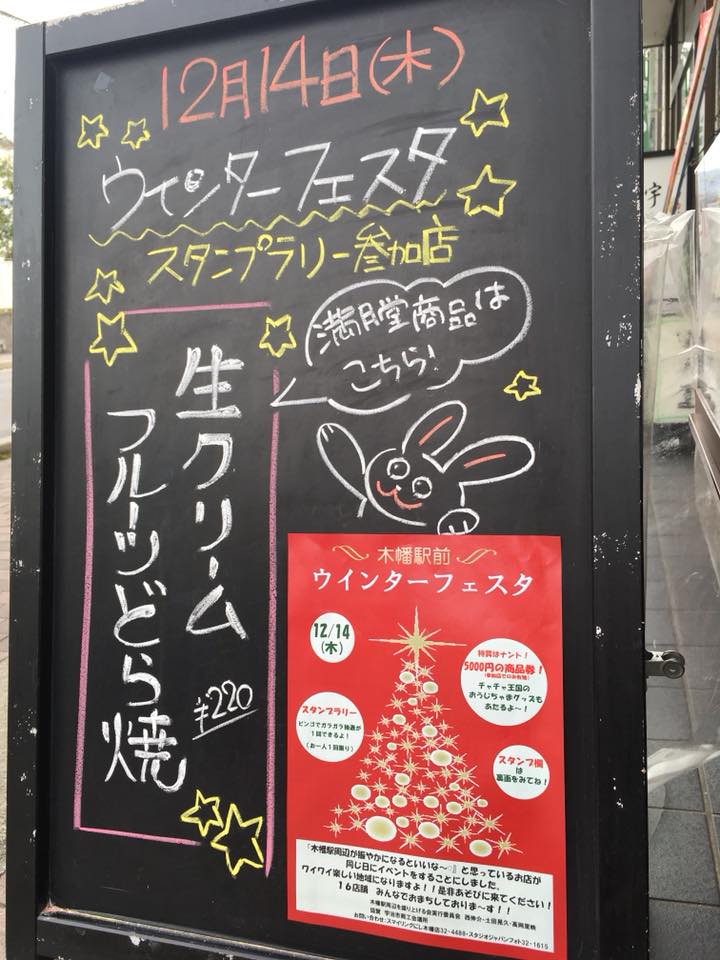 12月14日(木)
ウインターフェスタ
スタンプラリー参加店
満月堂商品は
こちら!
生クリーム
フルーツどら焼
¥220
木幡駅前
ウインターフェスタ
12/14
(木)
特賞はナント!
5000円の商品券!
(参加店でのみ有効)
チャチャ王国の
おうじちゃまグッズも
あたるよ〜!
スタンプラリー
ビンゴでガラガラ抽選が
1回できるよ!
(お一人1回限り)
スタンプ欄
は
裏面をみてね!
「木幡駅周辺が賑やかになるといいな〜♡』と思っているお店が
同じ日にイベントをすることにしました。
ワイワイ楽しい地域になりますよ!!是非あそびに来てください!
16店舗 みんなでおまちしておりま〜す!!
木幡駅周辺を盛り上げる会実行委員会 西伸介・土田晃久・高岡里映
協賛 宇治市商工会議所
お問い合わせ:スマイリングにし木幡店32-4488・スタジオジャパンフォト32-1615
宇